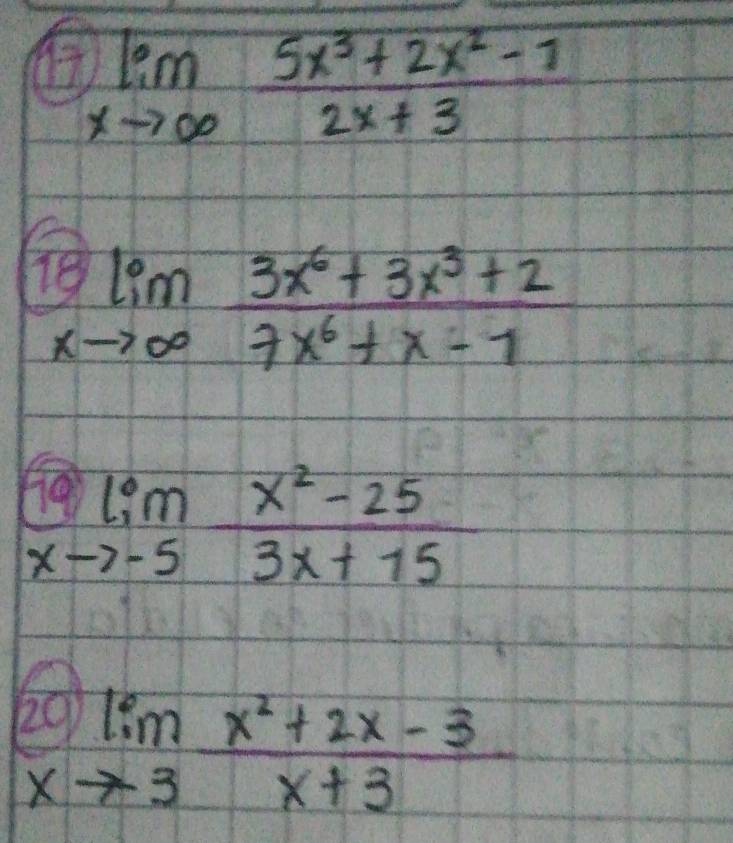 17 lim 5x³ + 2x² - 1
x → ∞ 2x + 3
18 lim 3x⁶ + 3x³ + 2
x → ∞ 7x⁶ + x - 1
19 lim x² - 25
x → -5 3x + 15
20 lim x² + 2x - 3
x → 3 x + 3